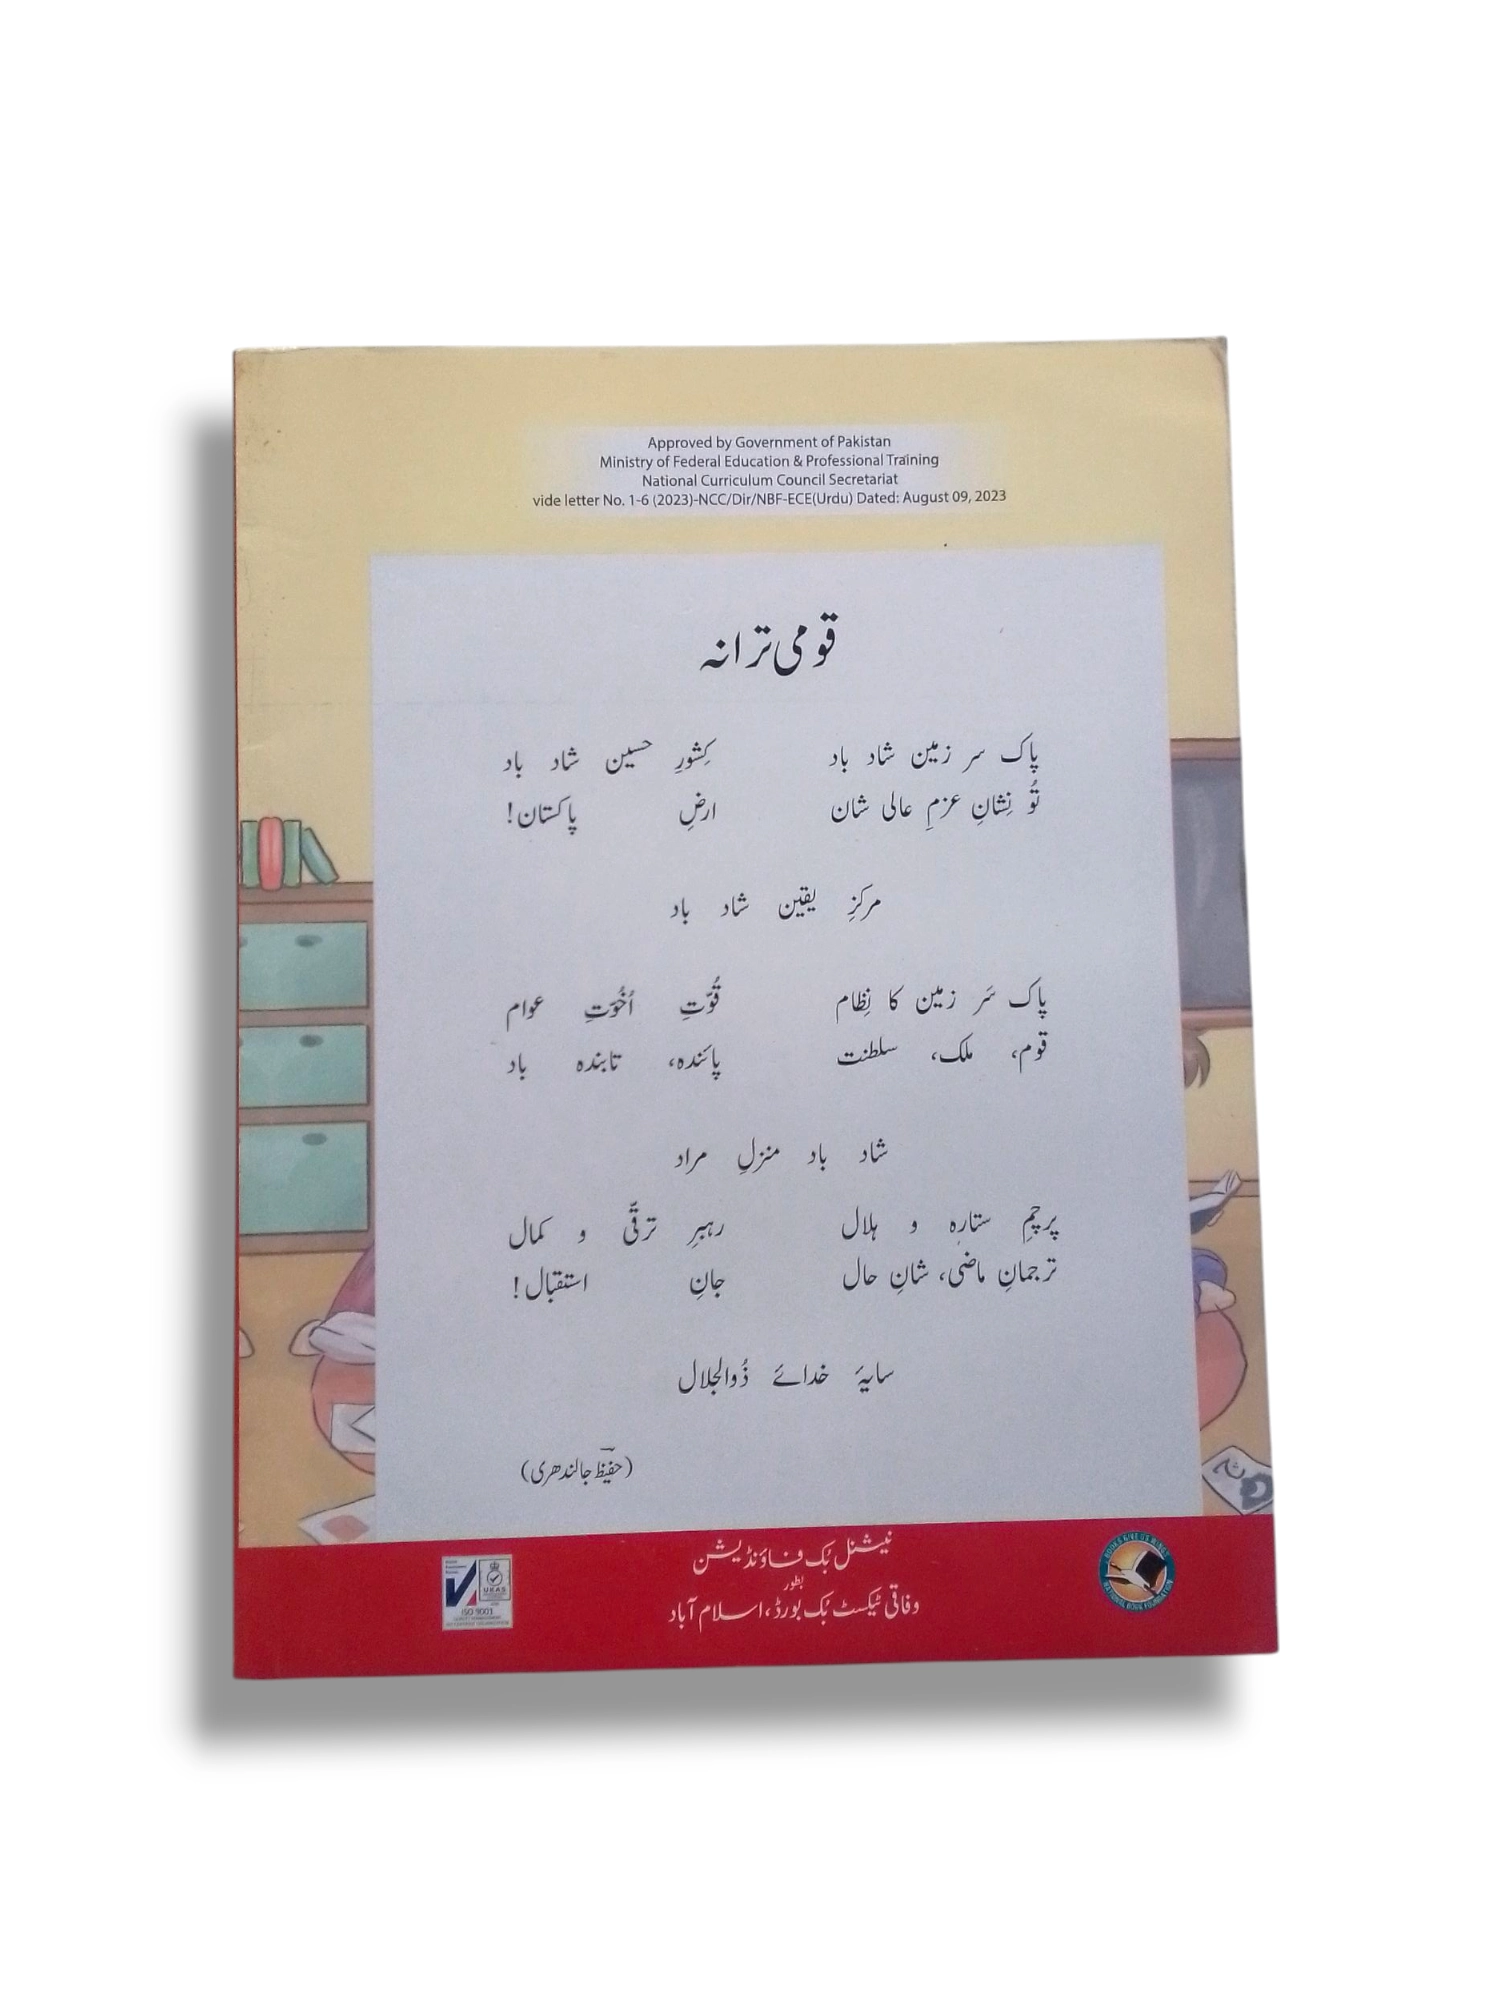 Approved by Government of Pakistan
Ministry of Federal Education & Professional Training
National Curriculum Council Secretariat
vide letter No. 1-6 (2023)-NCC/Dir/NBF-ECE(Urdu) Dated: August 09, 2023
قومی ترانہ
پاک سر زمین شاد باد کِشورِ حسین شاد باد
تُو نِشانِ عزمِ عالی شان ارضِ پاکستان!
مرکزِ یقین شاد باد
پاک سَر زمین کا نِظام قُوّتِ اُخُوّتِ عوام
قوم، ملک، سلطنت پائندہ، تابندہ باد
شاد باد منزلِ مراد
پرچمِ ستارہ و ہلال رہبرِ ترقّی و کمال
ترجمانِ ماضی، شانِ حال جانِ استقبال!
سایۂ خدائے ذُوالجلال
(حفیظؔ جالندھری)
نیشنل بُک فاؤنڈیشن
بطور
وفاقی ٹیکسٹ بُک بورڈ، اسلام آباد
UKAS
ISO 9001
BOOKS GIVE US WINGS
NATIONAL BOOK FOUNDATION